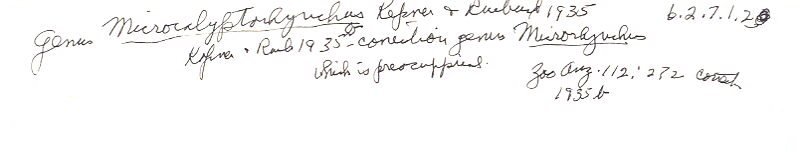 Genus Microcalyptorhynchus Kepner & Ruebush 1935 6.2.7.1.2
Kepner & Rueb 1935 b correction genus Microrhynchus
which is preoccupied. Zoo Anz. 112: 272
1935 b